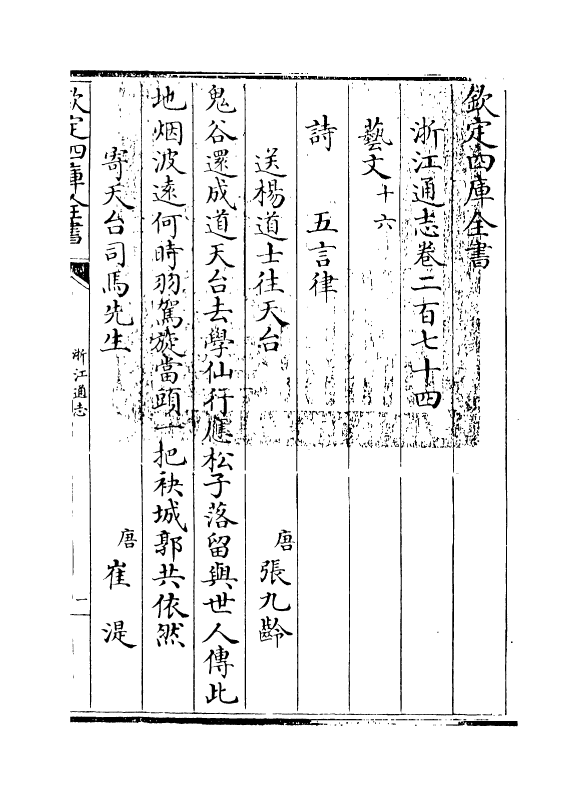 欽定四庫全書
浙江通志卷二百七十四
藝文十六
詩 五言律
送楊道士往天台 唐 張九齡
鬼谷還成道天台去學仙行應松子落留與世人傳此
地烟波遠何時羽駕旋當頭一把袂城郭共依然
寄天台司馬先生 唐 崔湜
欽定四庫全書
浙江通志
一